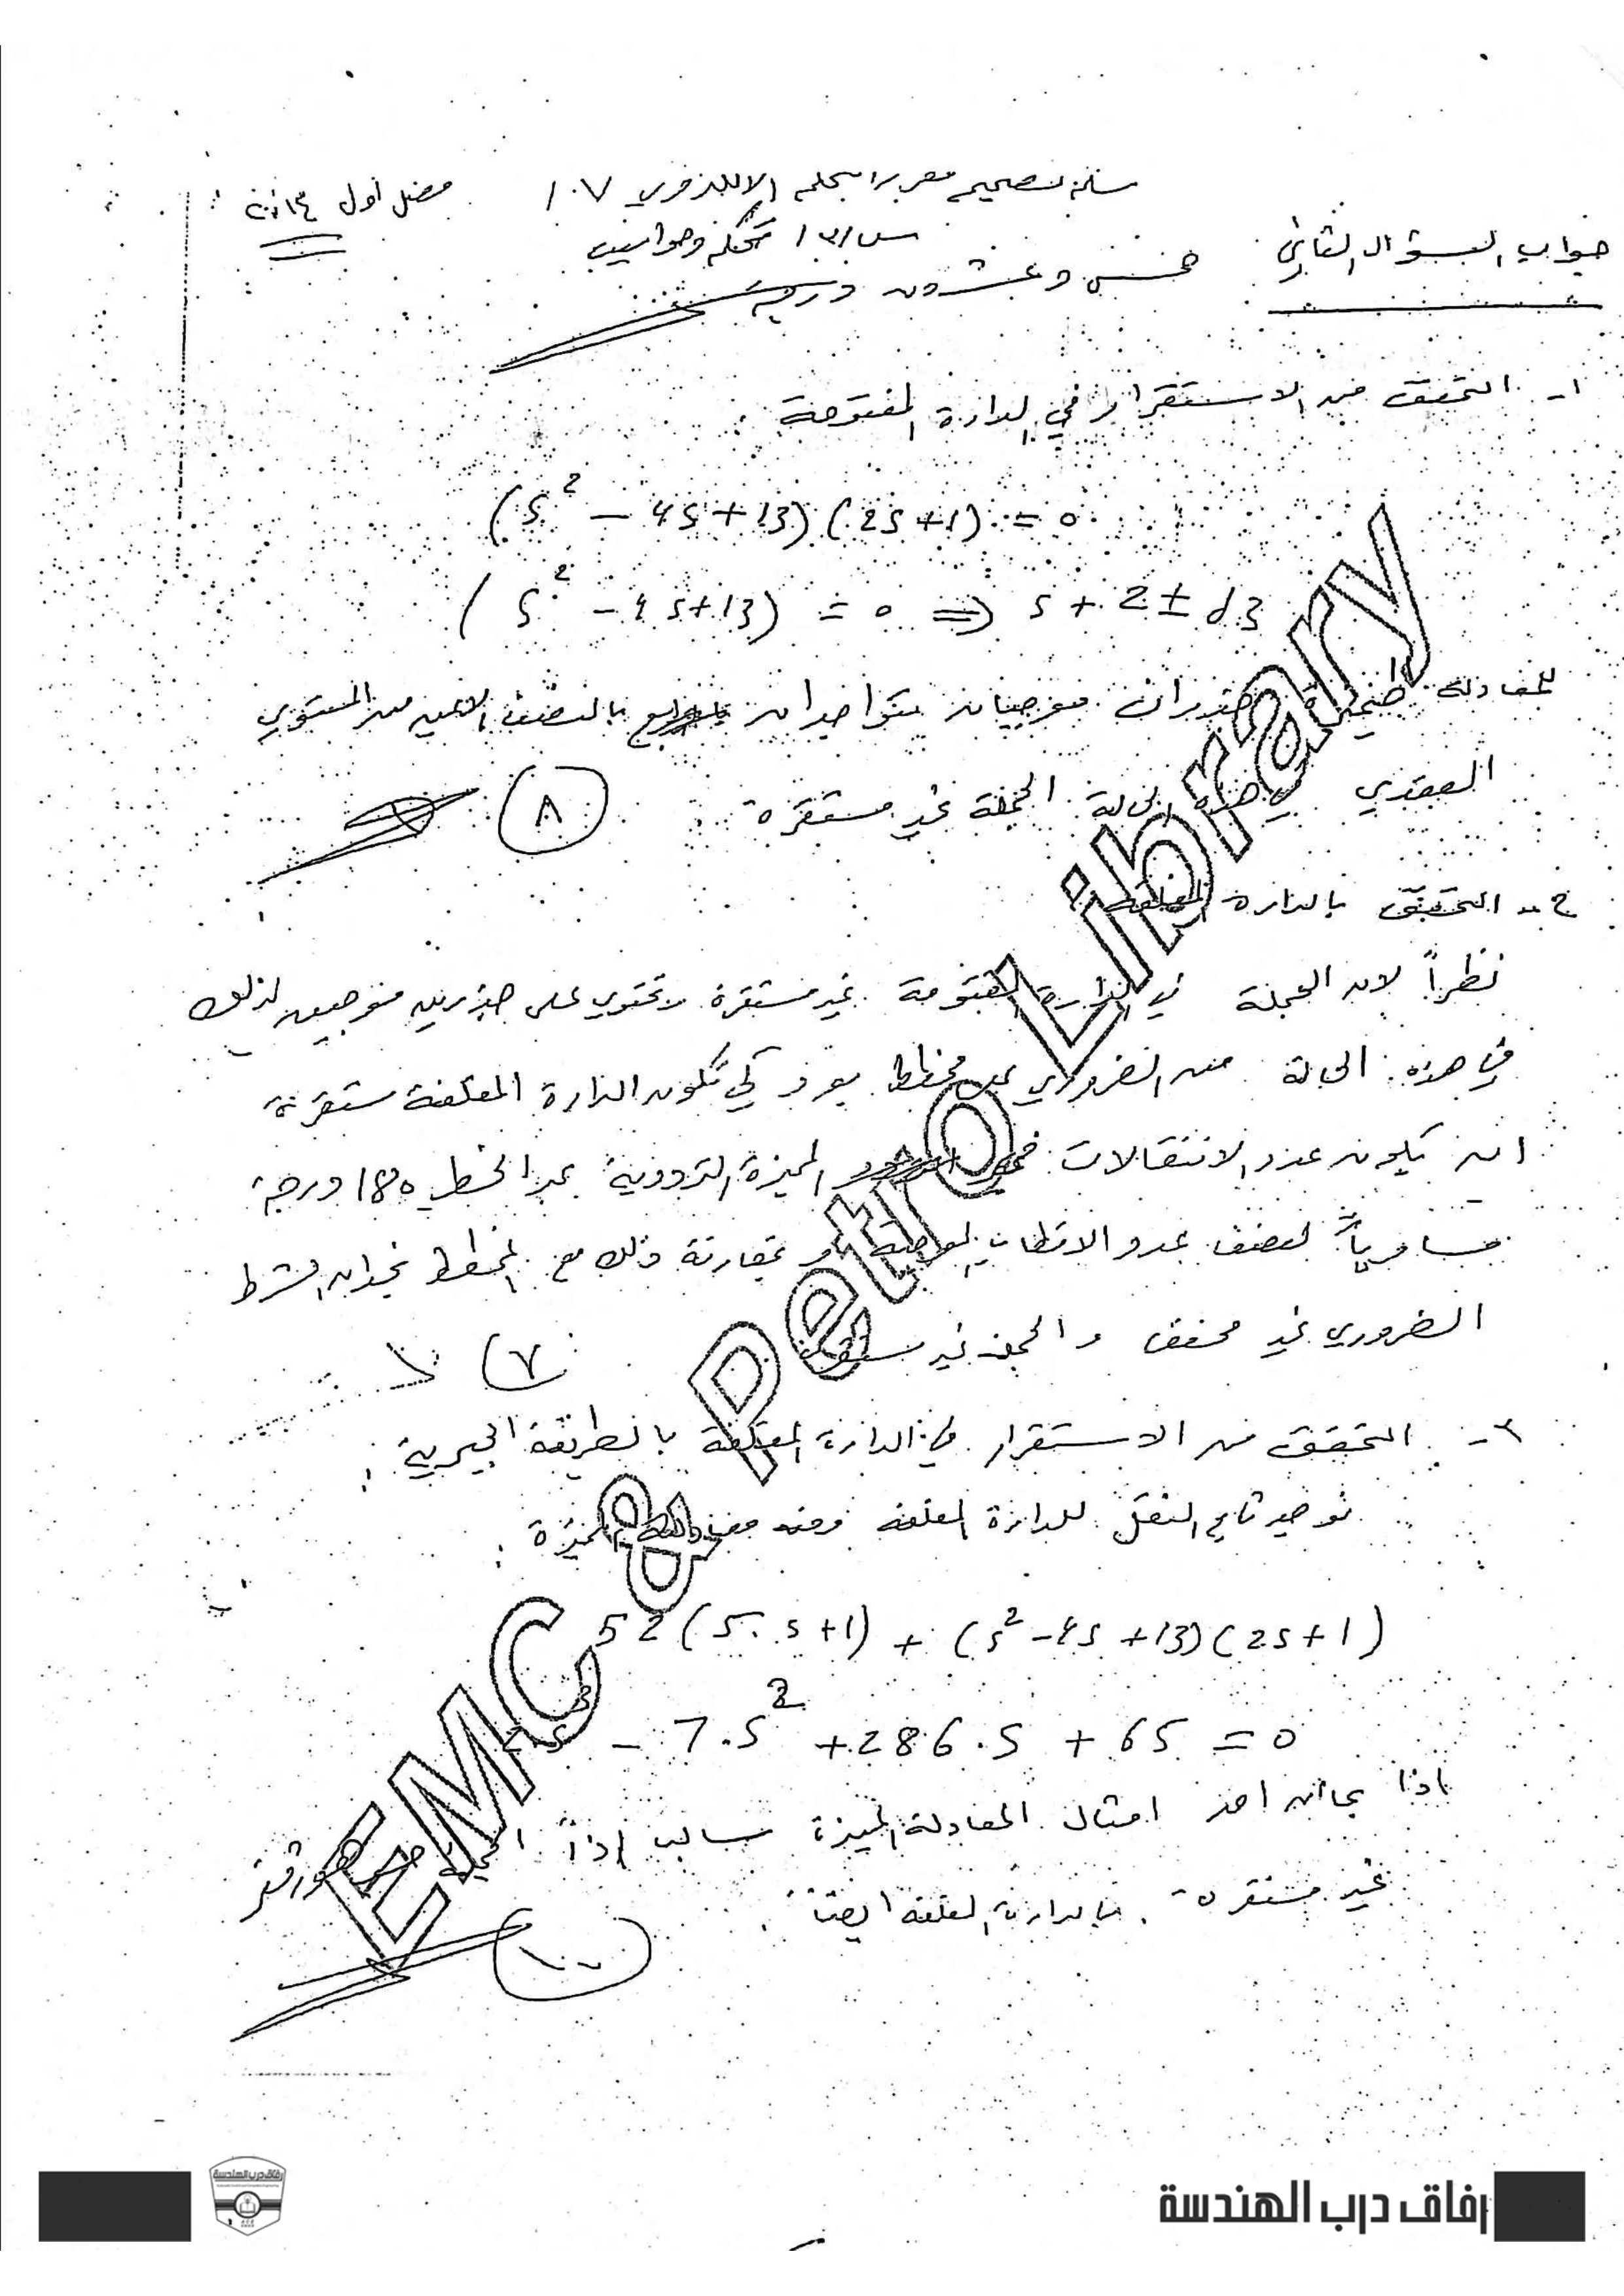 سلم تصحيح مقرر الجملة الالكتروني ١٠٧ فصل أول
تحكم وحواسيب
جواب السؤال الثاني خمس وعشرون درجة
١- التحقق من الاستقرار في الدارة المفتوحة :
(s² - 4s + 13) (2s + 1) = 0
(s² - 4s + 13) = 0 => s + 2 ± j3
للمعادلة جذران موجبان يتواجدان بالنصف الايمن من المستوي
العقدي في هذه الحالة الجملة غير مستقرة ٨
٢- التحقق بالدارة المغلقة
نظراً لان الجملة في الدارة المفتوحة غير مستقرة وتحتوي على جذرين موجبين لذلك
في هذه الحالة من الضروري على مخطط بود كي تكون الدارة المغلقة مستقرة
ان يكون عدد الانتقالات المميزة الترددية عبر الخط 180 درجة
مساوياً لنصف عدد الاقطاب الموجبة و بمقارنة ذلك مع المخطط نجد ان الشرط
الضروري غير محقق والجملة غير مستقرة ٧
٣- التحقق من الاستقرار في الدارة المغلقة بالطريقة الجبرية :
نوجد تابع النقل للدارة المغلقة ومنه معادلته المميزة :
52 (5.s + 1) + (s² - 4s + 13) (2s + 1)
2.s³ - 7.s² + 286.s + 65 = 0
اذا بما أن احد امثال المعادلة المميزة سالب إذاً الجملة
غير مستقرة بالدارة المغلقة ايضاً . ١٠
EMC & Petro Library
رفاق درب الهندسة